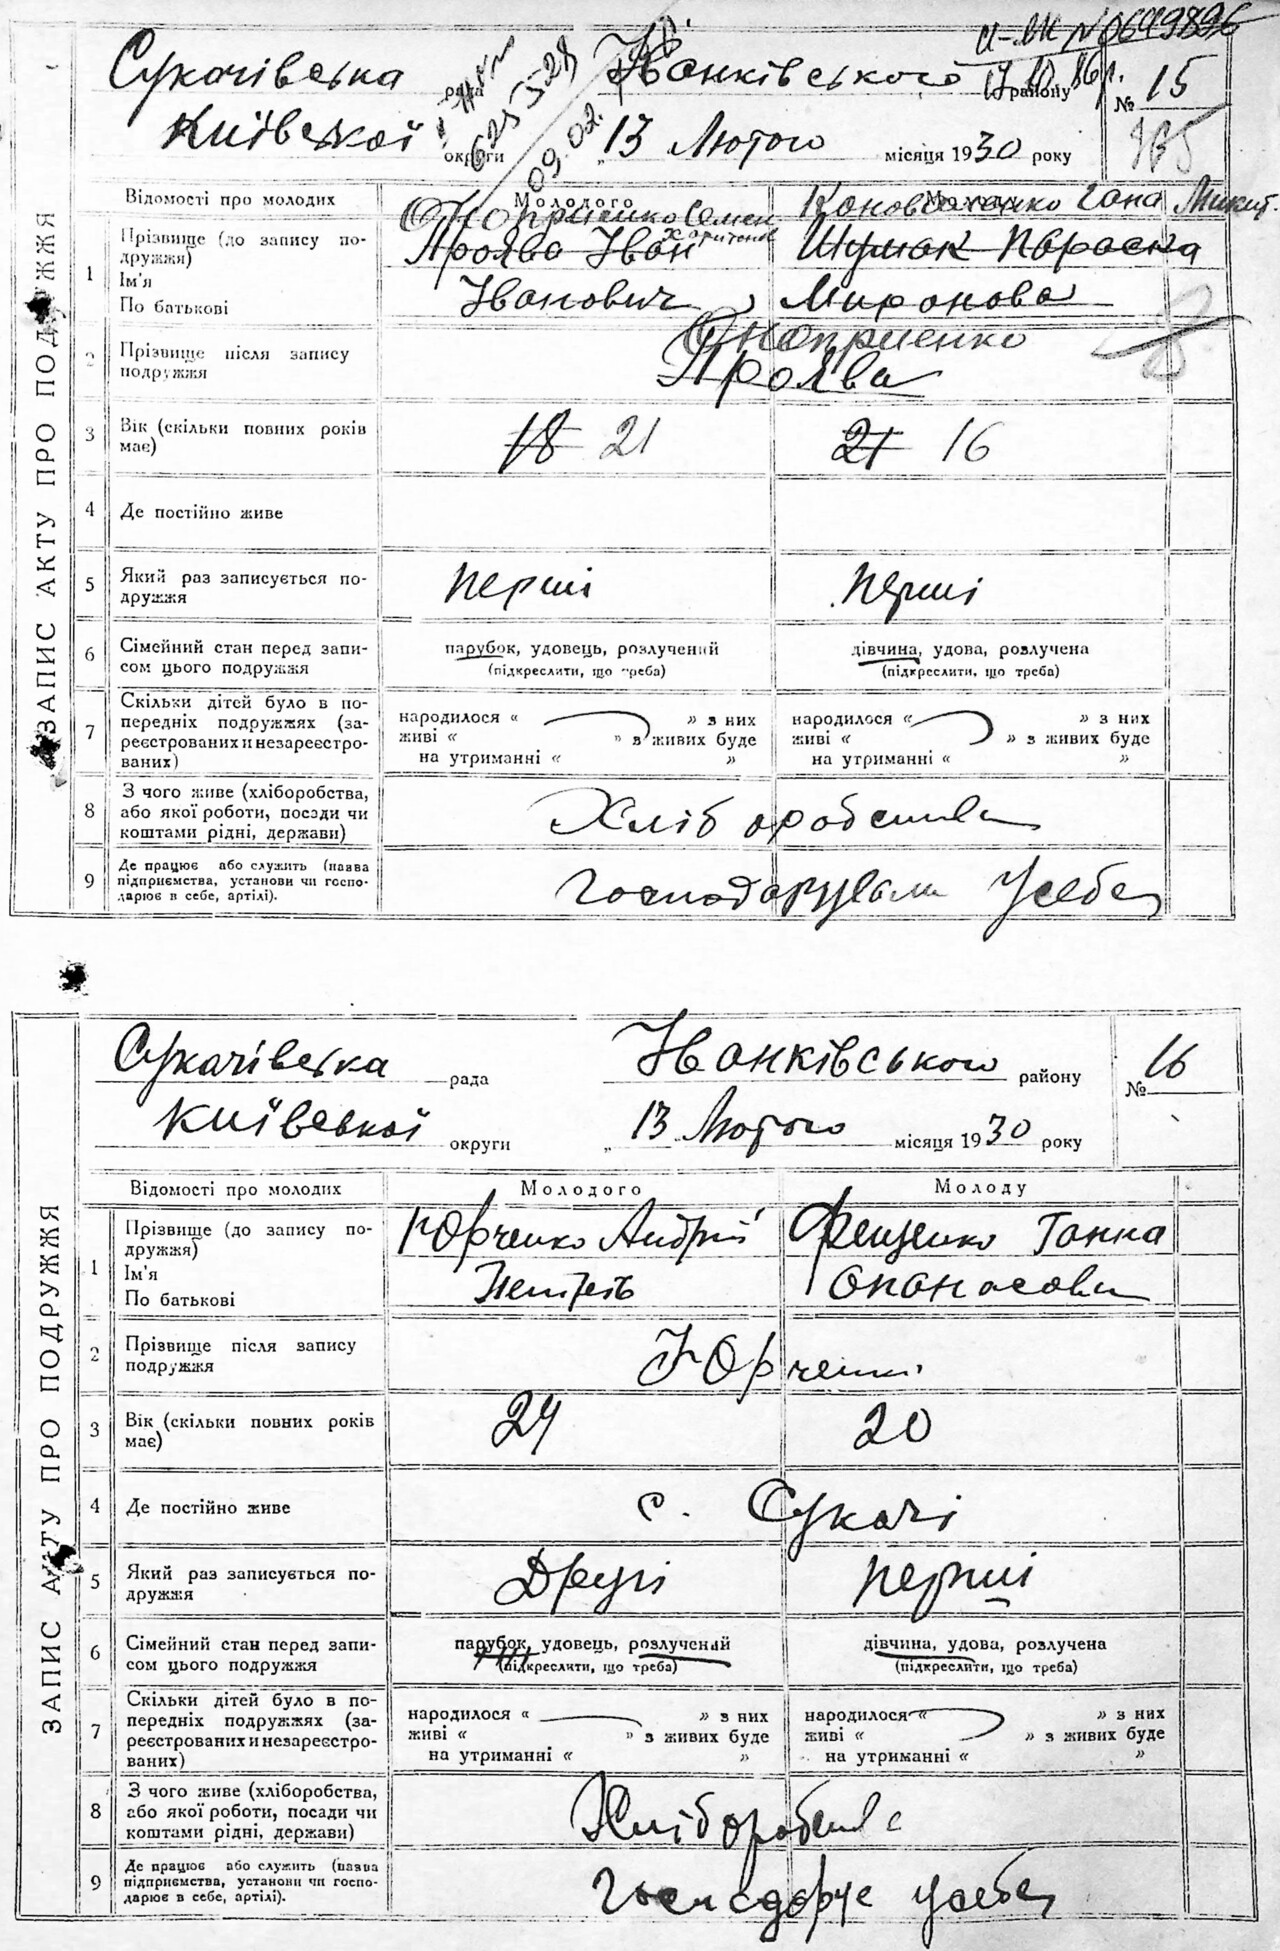 И-ЛК №0649896
17.10.86 р.
625 528
09.02.
Сукачівська рада Іванківського району № 15
Київської округи „13 Лютого місяця 1930 року
ЗАПИС АКТУ ПРО ПОДРУЖЖЯ
Відомості про молодих Молодого Молоду
Оноприенко Семен Харитонов Коноваленко Гана Микит.
1 Прізвище (до запису подружжя) Проява Іван Шумак Параска
Ім'я
По батькові Іванович Миронова
Оноприенко
2 Прізвище після запису подружжя Проява
3 Вік (скільки повних років має) 18 21 21 16
4 Де постійно живе
5 Який раз записується подружжя перші перші
6 Сімейний стан перед записом цього подружжя парубок, удовець, розлучений дівчина, удова, розлучена
(підкреслити, що треба) (підкреслити, що треба)
7 Скільки дітей було в попередніх подружжях (зареєстрованих и незареєстрованих)
народилося « » з них народилося « » з них
живі « » з живих буде живі « » з живих буде
на утриманні « » на утриманні « »
8 З чого живе (хліборобства, або якої роботи, посади чи коштами рідні, держави)
9 Де працює або служить (назва підприємства, установи чи господарює в себе, артілі). усебе
Сукачівська рада Іванківського району № 16
Київської округи „13 Лютого місяця 1930 року
ЗАПИС АКТУ ПРО ПОДРУЖЖЯ
Відомості про молодих Молодого Молоду
1 Прізвище (до запису подружжя) Юрченко Андрій Фещенко Ганна
Ім'я
По батькові Опанасова
2 Прізвище після запису подружжя Юрченкі
3 Вік (скільки повних років має) 24 20
4 Де постійно живе с. Сукачі
5 Який раз записується подружжя Другі перші
6 Сімейний стан перед записом цього подружжя парубок, удовець, розлучений дівчина, удова, розлучена
(підкреслити, що треба) (підкреслити, що треба)
7 Скільки дітей було в попередніх подружжях (зареєстрованих и незареєстрованих)
народилося « » з них народилося « » з них
живі « » з живих буде живі « » з живих буде
на утриманні « » на утриманні « »
8 З чого живе (хліборобства, або якої роботи, посади чи коштами рідні, держави)
9 Де працює або служить (назва підприємства, установи чи господарює в себе, артілі). усебе